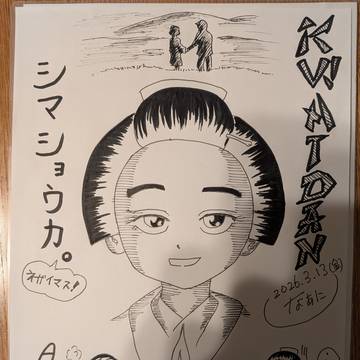 KWAIDAN
シマショウカ。
ネガイマス!
2026.3.13(金)
なぁに
A